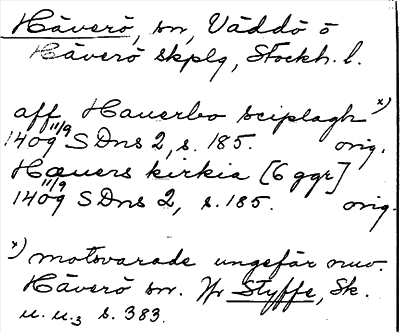 Häverö, sn, Väddö ö
Häverö skplg, Stockh. l.
aff Hauerbo sciplagh x)
1409 11/9 SDns 2, s. 185. orig.
Hæuers kirkia [6 ggr]
1409 11/9 SDns 2, s. 185. orig.
x) motsvarade ungefär nuv.
Häverö sn. Jfr Styffe, Sk.
u. u.3 s. 383.